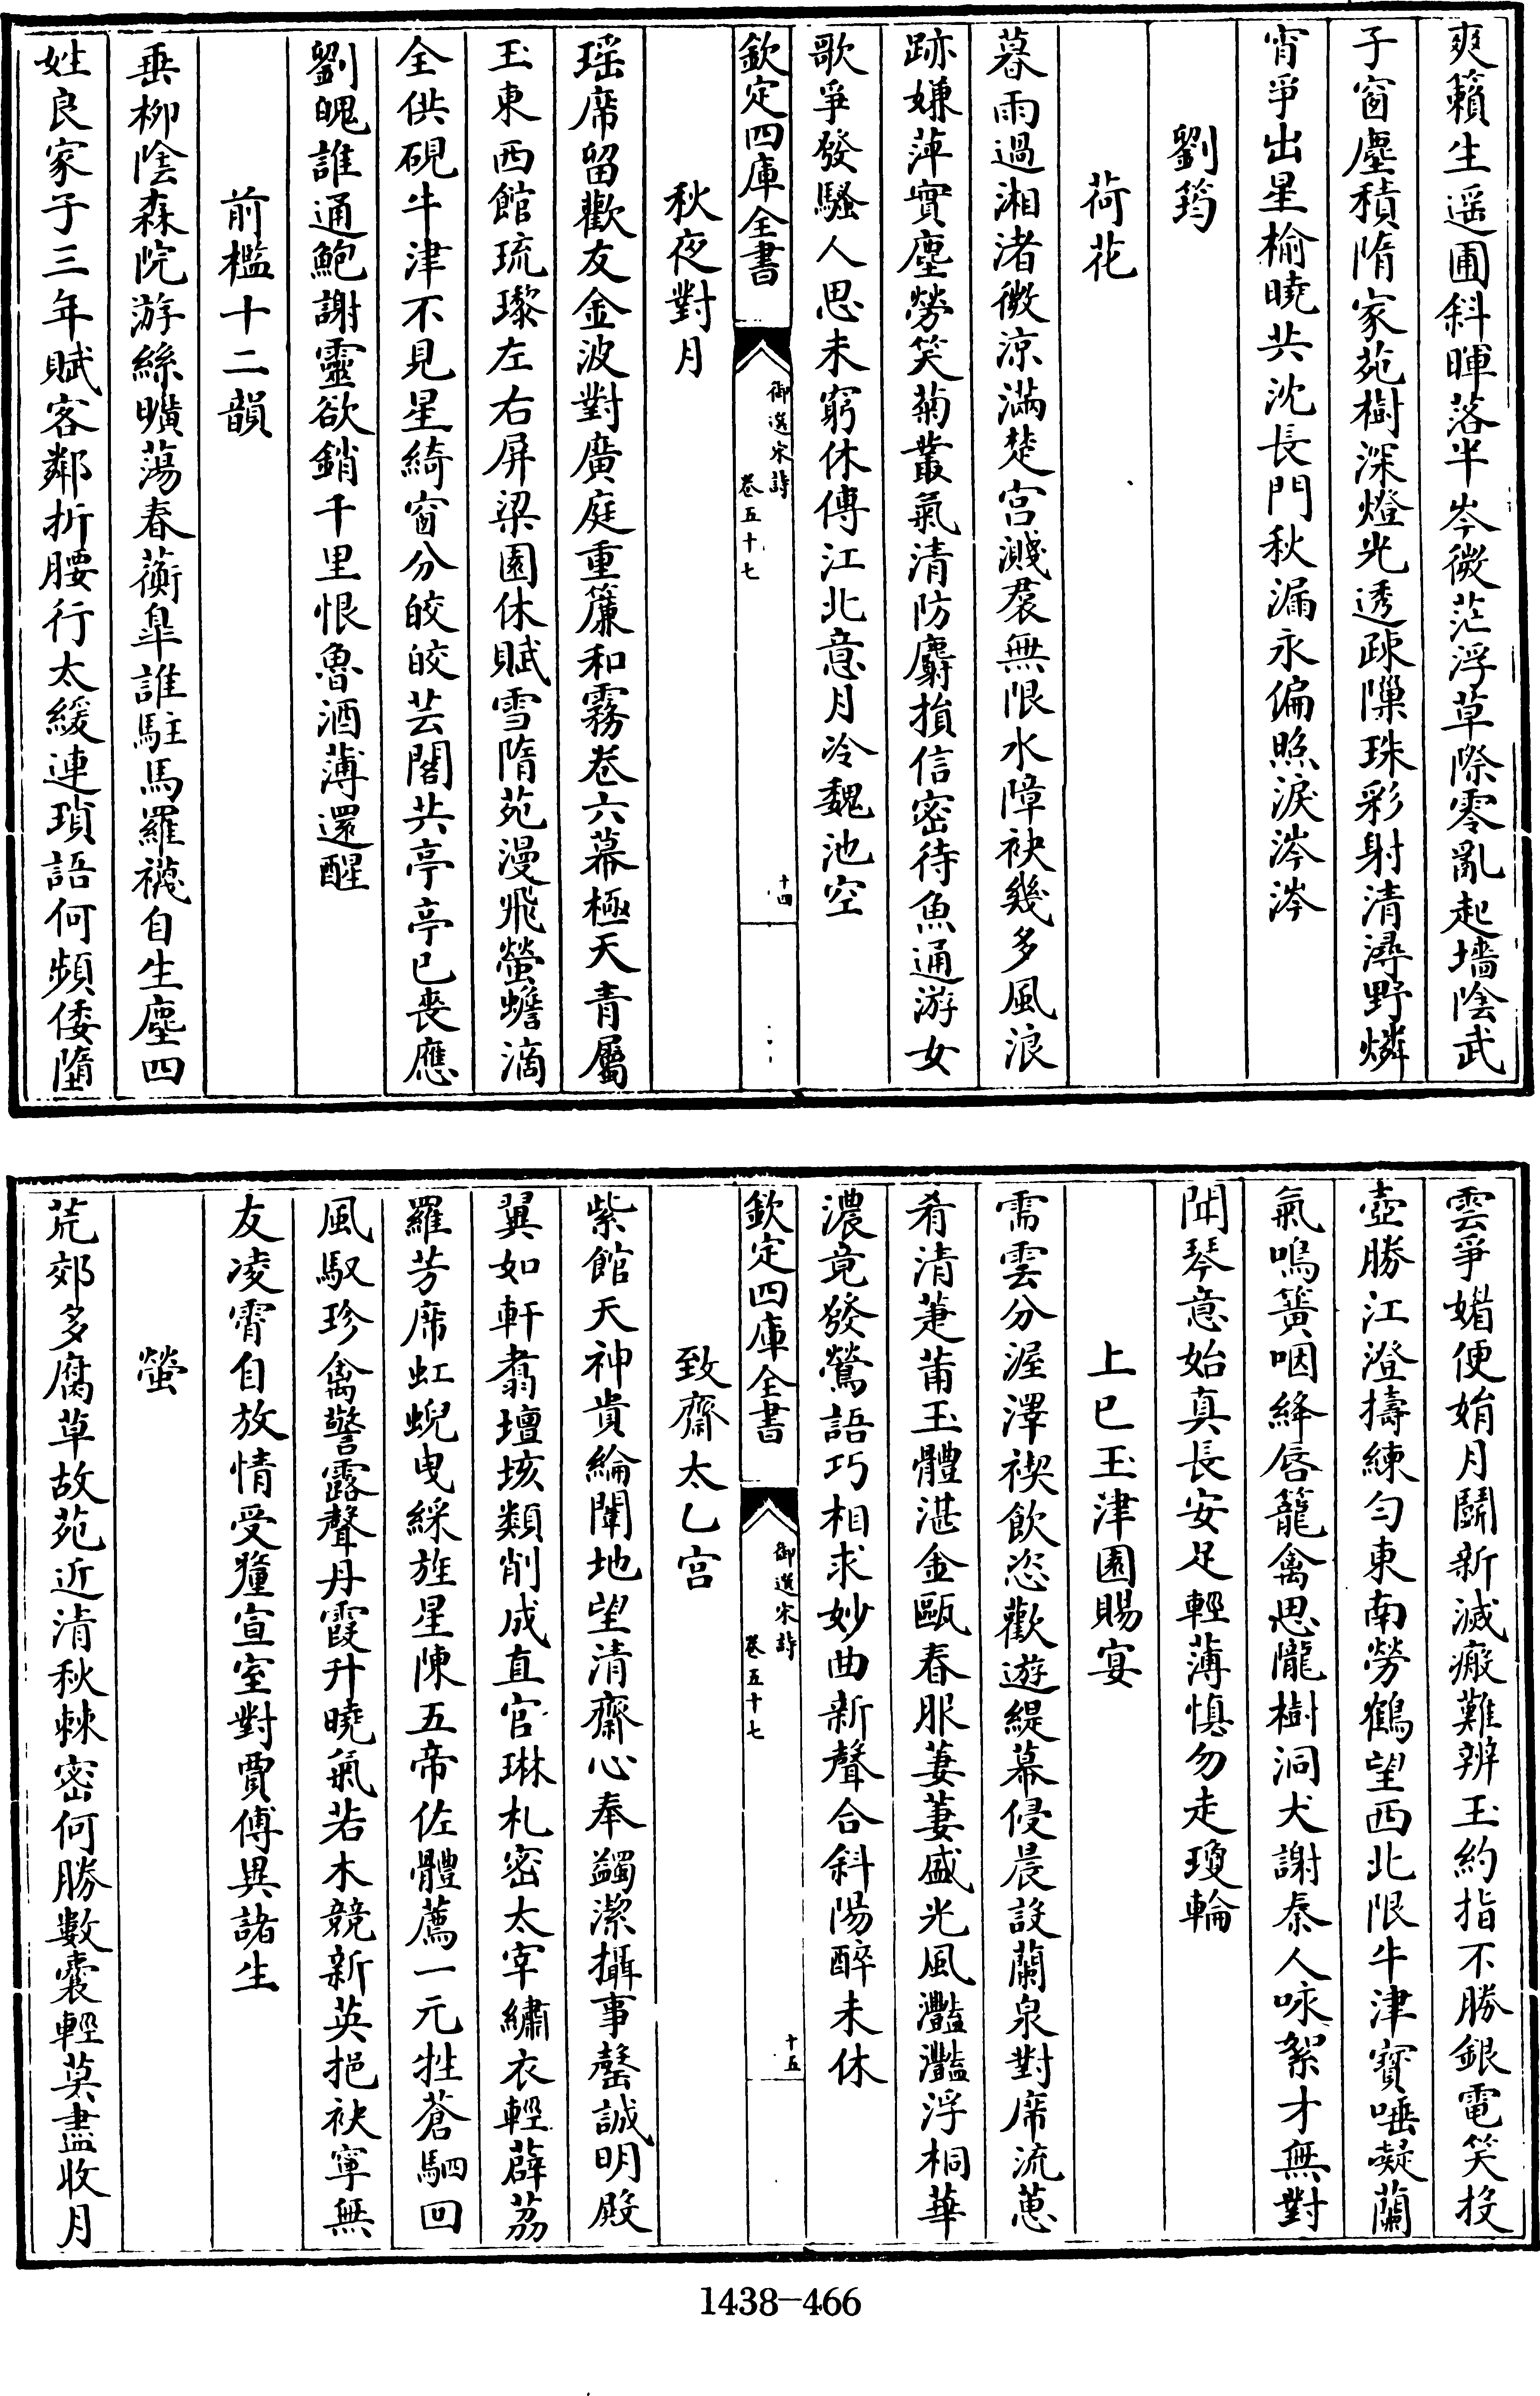 爽籟生遥圃斜暉落半岑微茫浮草際零亂起墻陰武
子窗塵積隋家苑樹深燈光透疎隟珠彩射清潯野燐
宵爭出星榆曉共沈長門秋漏永偏照淚涔涔
劉筠
荷花
暮雨過湘渚微涼滿楚宮濺裠無限水障袂幾多風浪
跡嫌萍實塵勞笑菊叢氣清防麝損信密待魚通游女
歌爭發騷人思未窮休傳江北意月冷魏池空
欽定四庫全書
御選宋詩
卷五十七
十四
秋夜對月
瑶席留歡友金波對廣庭重簾和霧卷六幕極天青屬
玉東西館琉璨左右屏梁園休賦雪隋苑漫飛螢蟾滴
全供硯牛津不見星綺窗分皎皎芸閣共亭亭已喪應
劉魄誰通鮑謝靈欲銷千里恨魯酒薄還醒
前檻十二韻
垂柳陰森院游絲曠蕩春蘅臯誰駐馬羅襪自生塵四
姓良家子三年賦客鄰折腰行太緩連瑣語何頻倭墮
雲爭媚便娟月鬭新滅瘢難辨玉約指不勝銀電笑投
壺勝江澄擣練勻東南勞鶴望西北限牛津寳唾凝蘭
氣鳴簧咽絳唇籠禽思隴樹洞犬謝秦人咏絮才無對
聞琴意始真長安足輕薄慎勿走瓊輪
上巳玉津園賜宴
需雲分渥澤禊飲恣歡遊緹幕侵晨設蘭泉對席流蕙
肴清萐莆玉體湛金甌春服萋萋盛光風灩灩浮桐華
濃竟發鶯語巧相求妙曲新聲合斜陽醉未休
欽定四庫全書
御選宋詩
卷五十七
十五
致齋太乙宮
紫館天神貴綸闈地望清齋心奉蠲潔攝事罄誠明殿
翼如軒翥壇垓類削成直官琳札密太宰繡衣輕薜荔
羅芳席虹蜺曳綵旌星陳五帝佐體薦一元牲蒼駟回
風馭珍禽警露聲丹霞升曉氣若木競新英挹袂寧無
友凌霄自放情受釐宣室對賈傅異諸生
螢
荒郊多腐草故苑近清秋棘密何勝數囊輕莫盡收月
1438-466